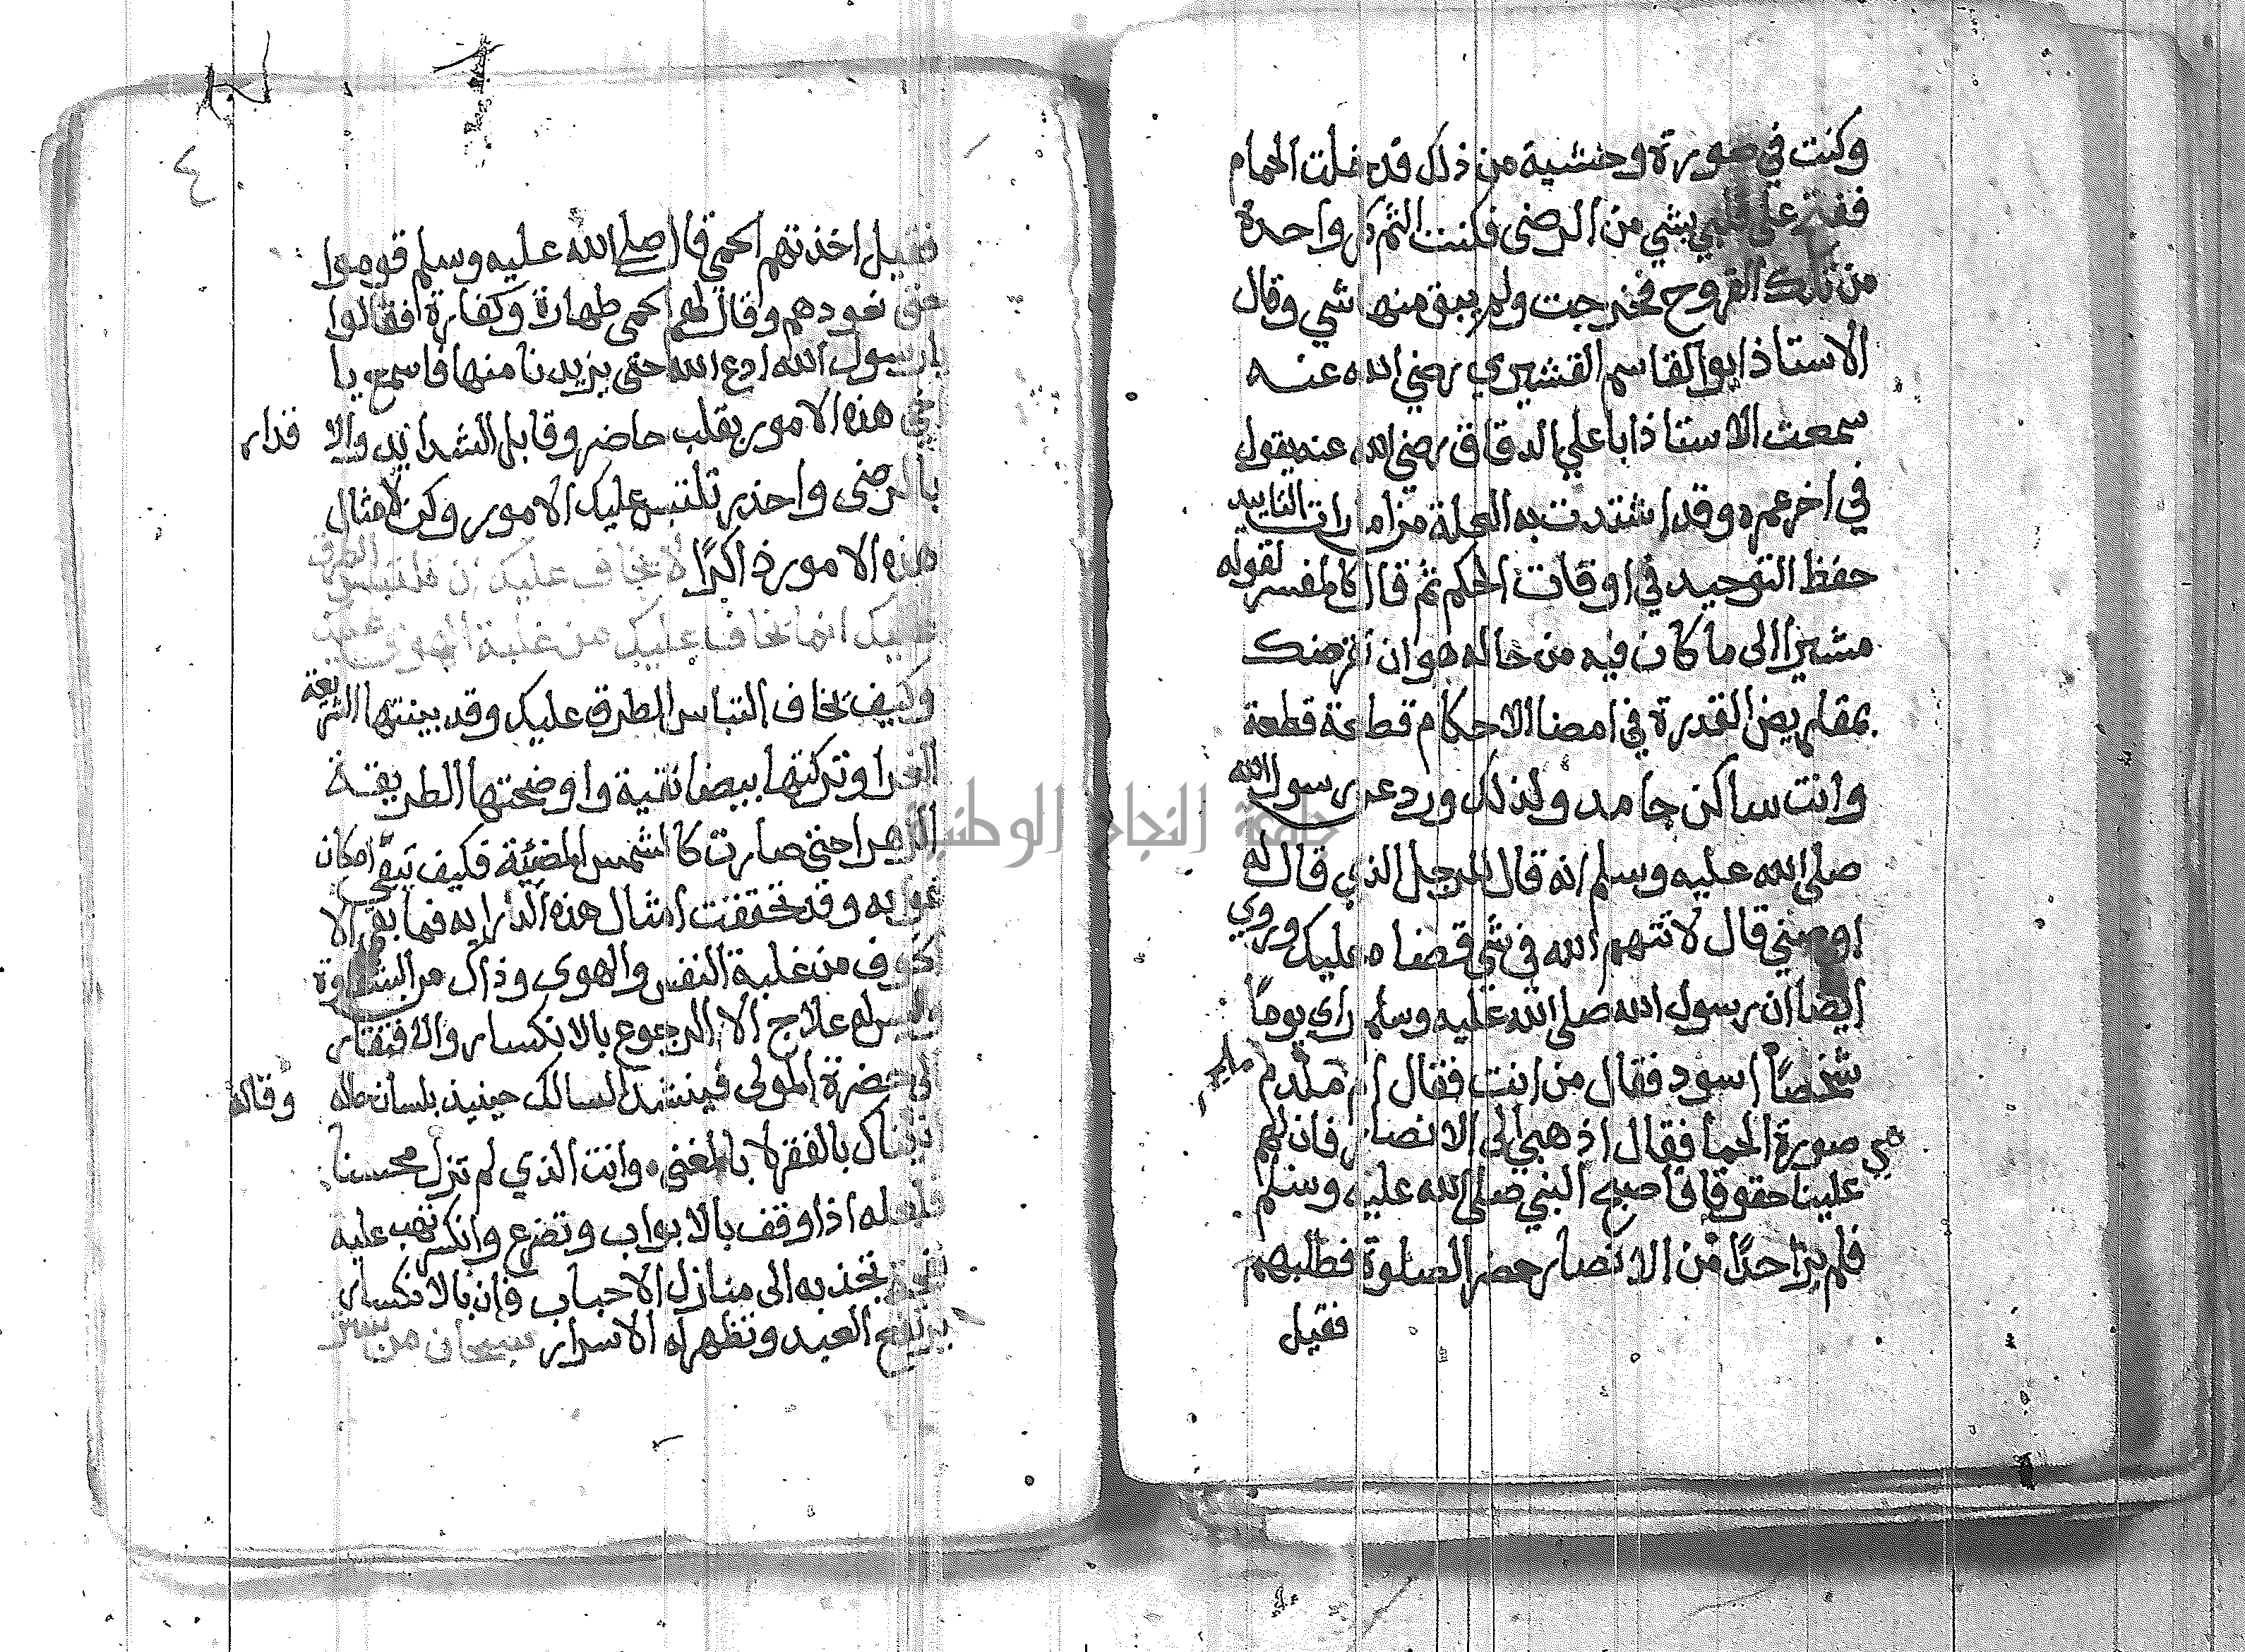 وكنت في صورة وحشية من ذلك فدخلت الحمام
ففتح على قلبي بشي من الرضى فكنت الثم كل واحدة
من تلك القروح فخرجت ولم يبق منها شي وقال
الاستاذ ابو القاسم القشيري رضي الله عنه
سمعت الاستاذ ابا علي الدقاق رضي الله عنه يقول
في اخر عمره وقد اشتدت به العلة من امارات التاييد
حفظ التوحيد في اوقات الحكم ثم قال كالمفسر لقوله
مشيرا الى ما كان فيه من حاله هو ان تقرضك
بمقاريض القدرة في امضا الاحكام قطعة قطعة
وانت ساكن جامد ولذلك ورد عن رسول الله
صلى الله عليه وسلم انه قال للرجل الذي قال له
اوصني قال لا تتهم الله في شي قضاه عليك وروي
ايضا ان رسول الله صلى الله عليه وسلم راى يوما
شخصا اسود فقال من انت فقال ام ملدم
هي صورة الحما فقال اذهبي الى الانصار فان لهم
علينا حقوقا فاصبح النبي صلى الله عليه وسلم
فلم ير احدا من الانصار حضر الصلوة فطلبهم
فقيل
٤
فقيل اخذتهم الحمى قال صلى الله عليه وسلم قوموا
حتى نعودهم وقال لهم الحمى طهارة وكفارة فقالوا
يا رسول الله ادع الله حتى يزيدنا منها فاسمع يا
اخي هذه الامور بقلب حاضر وقابل الشدايد والاقدار
بالرضى واحذر تلتبس عليك الامور وكن لامثال
هذه الامور ذاكرا لا يخاف عليك ان تلتبس الطرق
عليك انما يخاف عليك من غلبة الهوى عليك
وكيف يخاف التباس الطرق عليك وقد بينتها الشريعة
الغرا وتركتها بيضا نقية واوضحتها الطريقة
الزهرا حتى صارت كالشمس المضيئة فكيف تبقى امكان
غوايه وقد تحققت امثال هذه الدرايه فما بقي الا
الخوف من غلبة النفس والهوى وذاك من الشقاوة
وليس له علاج الا الرجوع بالانكسار والافتقار
الى حضرة المولى فينشد السالك حينيذ بلسان حاله وقاله
اتيناك بالفقر لا بالغنى ٠ وانت الذي لم تزل محسنا
فلعله اذا وقف بالابواب وتضرع وانكسر تهب عليه
نفحة تجذبه الى منازل الاحباب فان بالانكسار
يرتفع العبد وتظهر له الاسرار سبحان من ستر
جامعة النجاح الوطنية